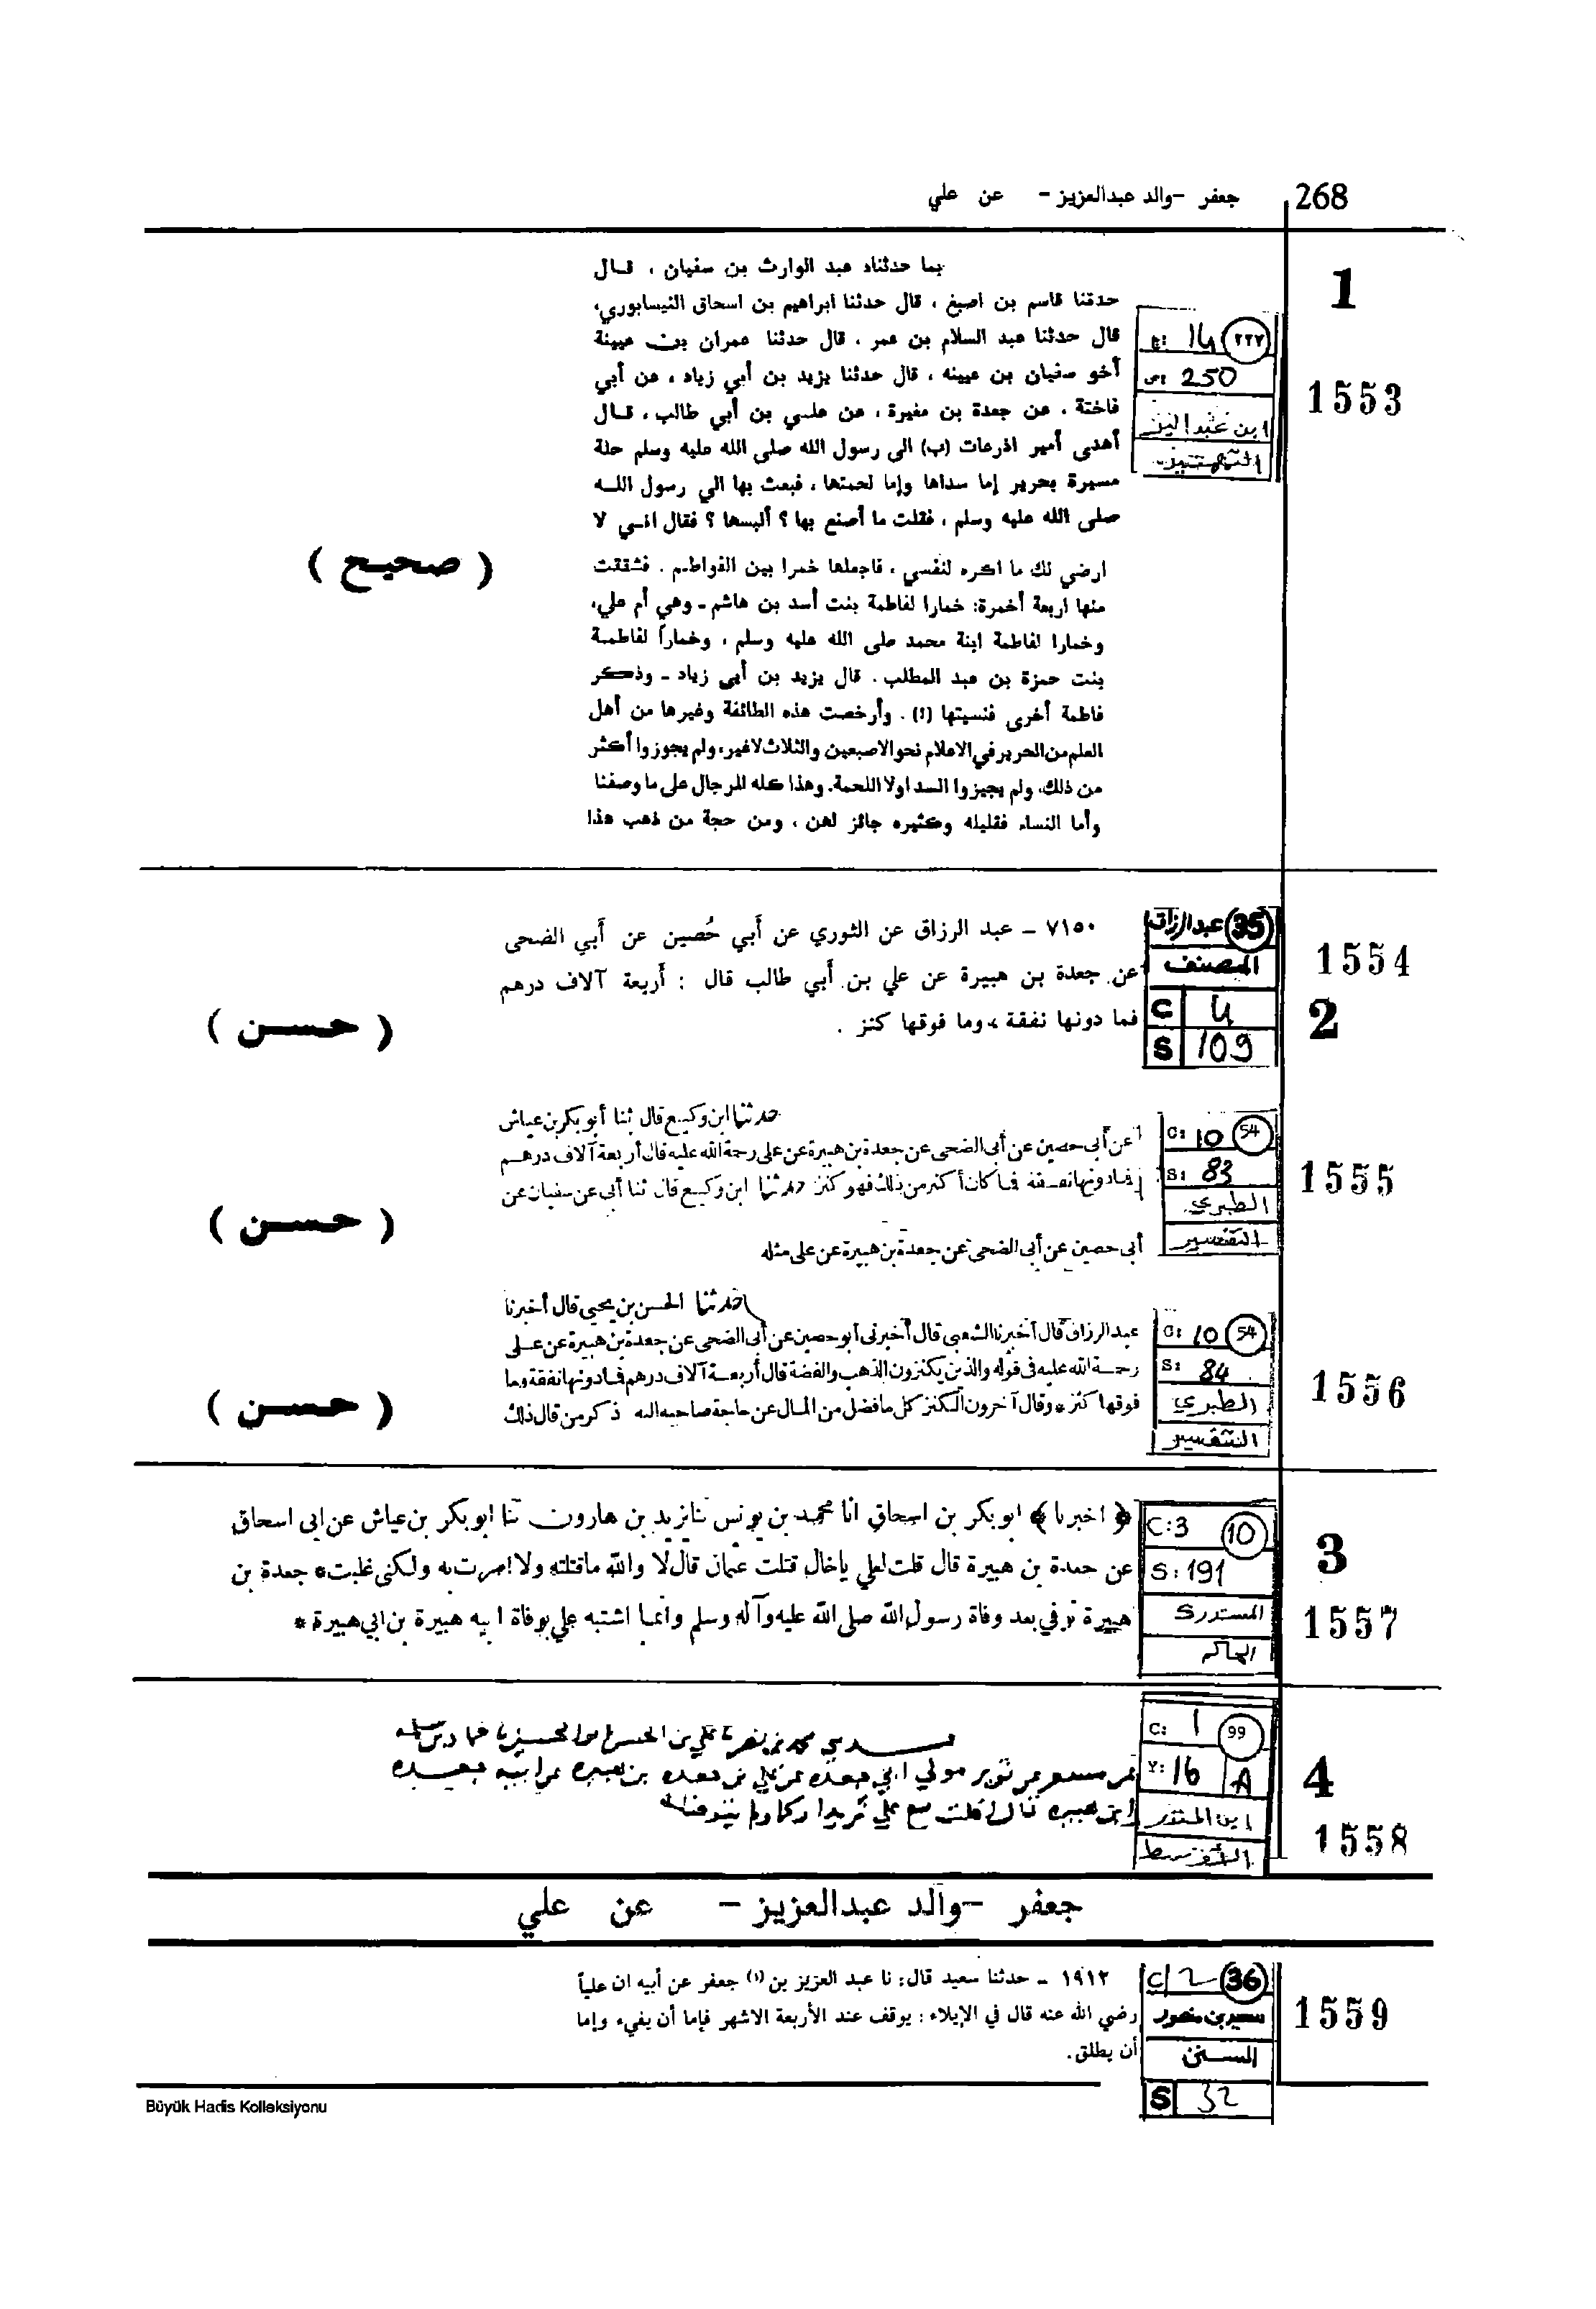 268 جعفر -والد عبدالعزيز- عن علي
1
1553
٢٢٧ 14
ص: 250
ابن عبد البر
التمهيد
بما حدثناه عبد الوارث بن سفيان ، قال
حدثنا قاسم بن اصبغ ، قال حدثنا ابراهيم بن اسحاق النيسابوري،
قال حدثنا عبد السلام بن عمر ، قال حدثنا عمران بن عيينة
أخو سفيان بن عيينه ، قال حدثنا يزيد بن أبي زياد ، عن أبي
فاختة ، عن جعدة بن مغيرة ، عن علي بن أبي طالب ، قال
أهدى أمير اذرعات (ب) الى رسول الله صلى الله عليه وسلم حلة
مسيرة بحرير إما سداها وإما لحمتها ، فبعث بها الي رسول الله
صلى الله عليه وسلم ، فقلت ما أصنع بها ؟ ألبسها ؟ فقال اني لا
ارضي لك ما اكره لنفسي ، فاجعلها خمرا بين الفواطم . فشققت
منها اربعة أخمرة: خمارا لفاطمة بنت أسد بن هاشم - وهي أم علي،
وخمارا لفاطمة ابنة محمد صلى الله عليه وسلم ، وخماراً لفاطمة
بنت حمزة بن عبد المطلب . قال يزيد بن أبي زياد - وذكر
فاطمة أخرى فنسيتها (١) . وأرخصت هذه الطائفة وغيرها من أهل
العلم من الحرير في الاعلام نحو الاصبعين والثلاث لا غير، ولم يجوزوا أكثر
من ذلك، ولم يجيزوا السدا ولا اللحمة. وهذا كله للرجال على ما وصفنا
وأما النساء فقليله وكثيره جائز لهن ، ومن حجة من ذهب هذا
( صحيح )
1554
2
35 عبدالرزاق
المصنف
C 4
S 109
٧١٥٠ - عبد الرزاق عن الثوري عن أبي حُصين عن أبي الضحى
عن جعدة بن هبيرة عن علي بن أبي طالب قال : أربعة آلاف درهم
فما دونها نفقة ، وما فوقها كنز .
( حسن )
1555
C: 10 54
S: 83
الطبري
التفسير
حدثنا ابن وكيع قال ثنا أبو بكر بن عياش
عن أبي حصين عن أبي الضحى عن جعدة بن هبيرة عن على رحمة الله عليه قال أربعة آلاف درهم
فما دونها نفقة فما كان أكثر من ذلك فهو كنز حدثنا ابن وكيع قال ثنا أبى عن سفيان عن
أبى حصين عن أبى الضحى عن جعدة بن هبيرة عن على مثله
( حسن )
1556
C: 10 54
S: 84
الطبري
التفسير
حدثنا الحسن بن يحيى قال أخبرنا
عبد الرزاق قال أخبرنا الشعبى قال أخبرنى أبو حصين عن أبى الضحى عن جعدة بن هبيرة عن على
رحمة الله عليه فى قوله والذين يكنزون الذهب والفضة قال أربعة آلاف درهم فما دونها نفقة وما
فوقها كنز * وقال آخرون الكنز كل ما فضل من المال عن حاجة صاحبه اليه ذكر من قال ذلك
( حسن )
3
1557
C:3 10
S:191
المستدرك
الحاكم
﴿ اخبرنا ﴾ ابو بكر بن اسحاق انا محمد بن يونس ثنا يزيد بن هارون ثنا ابو بكر بن عياش عن ابى اسحاق
عن جعدة بن هبيرة قال قلت لعلي ياخال قتلت عثمان قال لا والله ماقتلته ولا امرت به ولكنى غلبت * جعدة بن
هبيرة توفي بعد وفاة رسول الله صلى الله عليه وآله وسلم وانما اشتبه علي بوفاة ابيه هبيرة بن ابي هبيرة *
4
1558
C: 1 99
Y: 16 A
ابن المنذر
الأوسط
عن مسعر عن ثوير مولي
1559
جعفر -والد عبدالعزيز- عن علي
C/ 2 36
سعيد بن منصور
السنن
S 32
١٩١٢ - حدثنا سعيد قال: نا عبد العزيز بن (١) جعفر عن أبيه ان علياً
رضي الله عنه قال في الإيلاء : يوقف عند الأربعة الاشهر فإما أن يفيء وإما
أن يطلق.
Büyük Hadis Kolleksiyonu